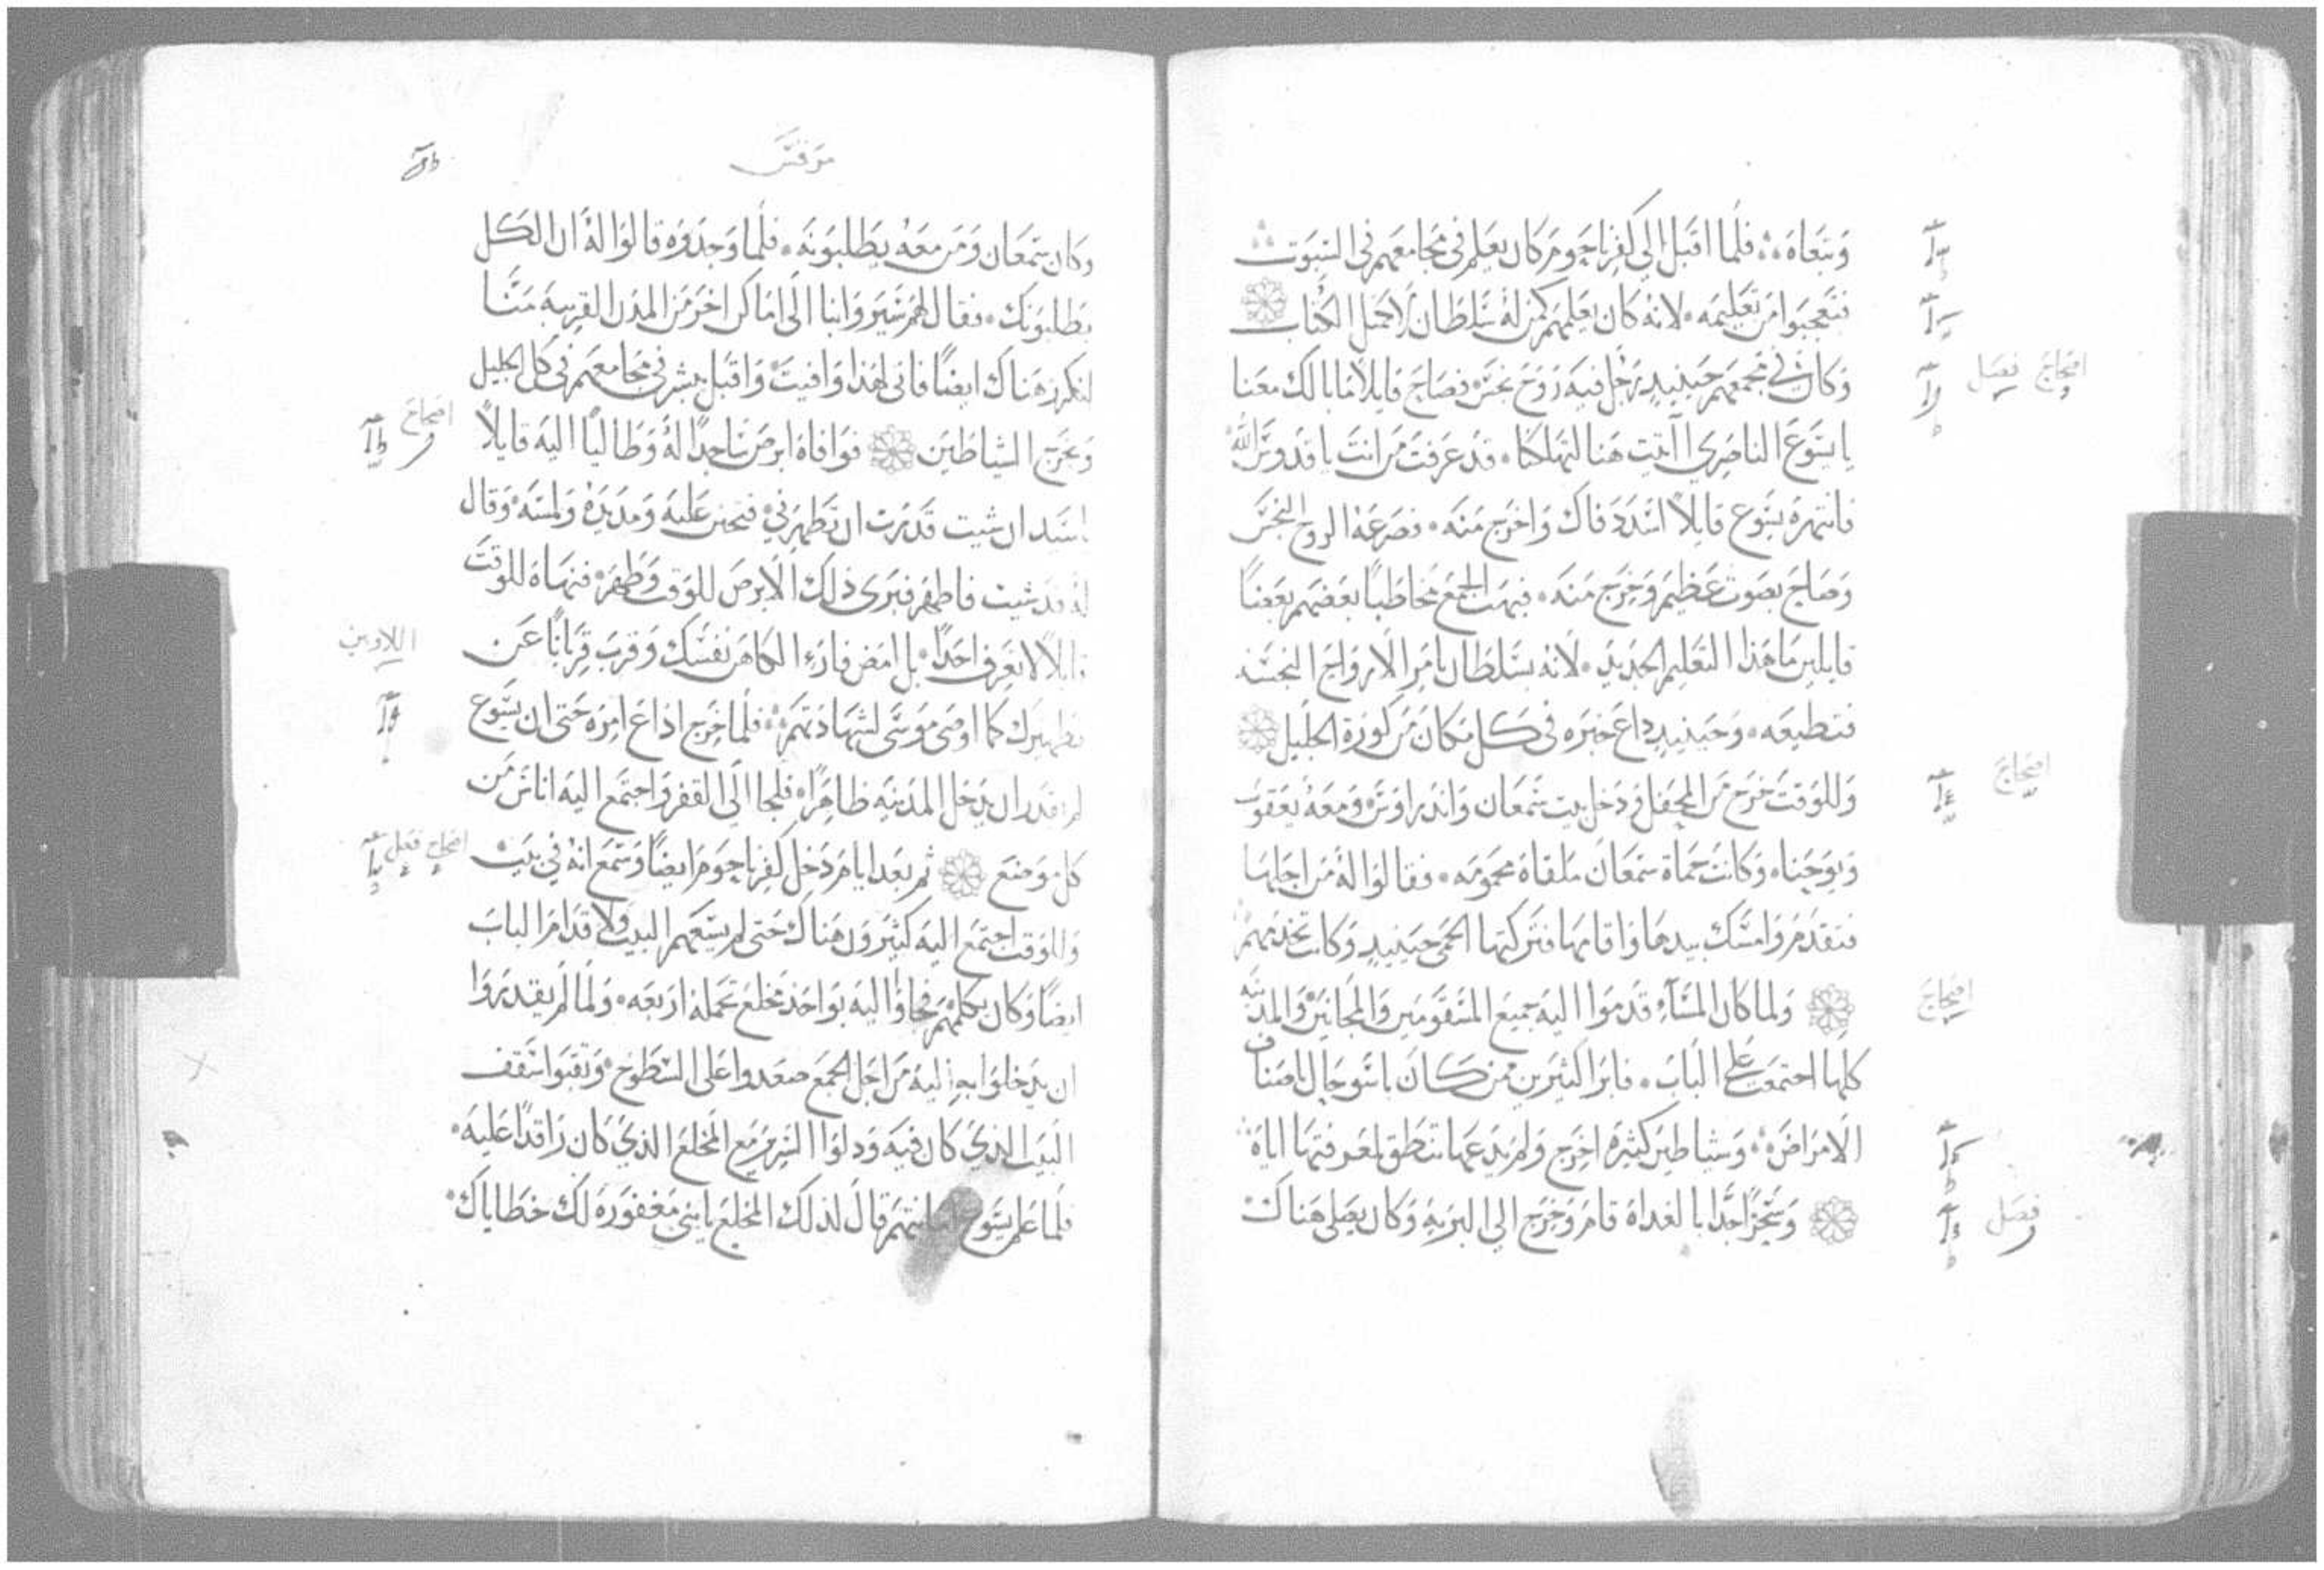 وتبعاه فلما اقبل الي كفرناحوم كان يعلم في مجامعهم في السبوت
فتعجبوا من تعليمه لانه كان يعلمهم كمن له سلطان لا كمثل الكتاب
افصاح فصل
وكان في مجمعهم حينيذ رجل فيه روح نجس فصاح قايلا ما بالك معنا
يا يسوع الناصري اتيت هنا لتهلكنا قد عرفت من انت يا قدوس الله
فانتهره يسوع قايلا اسدد فاك واخرج منه فصرعه الروح النجس
وصاح بصوت عظيم وخرج منه فبهت الجمع مخاطبا بعضهم بعضا
قايلين ما هذا التعليم الجديد لانه بسلطان يامر الارواح النجسه
فتطيعه وحينيذ ذاع خبره في كل مكان من كورة الجليل
افصاح
وللوقت خرج من المحفل ودخل بيت سمعان واندراوس ومعه يعقوب
ويوحنا وكانت حماة سمعان ملقاة محمومه فقالوا له من اجلها
فتقدم وامسك بيدها واقامها فتركتها الحمى حينيذ وكانت تخدمهم
افصاح
ولما كان المساء قدموا اليه جميع المسقومين والمجانين والمدينه
كلها اجتمعت على الباب فابرا كثيرين ممن كان باسو حال باصناف
الامراض وشياطين كثيره اخرج ولم يدعها تنطق لمعرفتها اياه
فصل
وسحرا جدا بالغداة قام وخرج الي البريه وكان يصلي هناك
مرقس
وكان سمعان ومن معه يطلبونه فلما وجدوه قالوا له ان الكل
يطلبونك فقال لهم سيروا بنا الى اماكن اخر من المدن القريبه منا
لنكرز هناك ايضا فاني لهذا وافيت واقبل يبشر في مجامعهم في كل الجليل
افصاح
ويخرج الشياطين فوافاه ابرص ساجدا له وطالبا اليه قايلا
يا سيد ان شيت قدرت ان تطهرني فتحنن عليه ومد يده ولمسه وقال
له قد شيت فاطهر فبرى ذلك الابرص للوقت وطهر فنهاه للوقت
اللاويين
قايلا لا تعرف احدا بل امض فارء الكاهن نفسك وقرب قربانا عن
تطهيرك كما اوصى موسى لشهادتهم فلما خرج اذاع امره حتى ان يسوع
لم يقدر ان يدخل المدينه ظاهرا فلجا الى القفر واجتمع اليه اناس من
افصاح فصل
كل موضع ثم بعد ايام دخل كفرناحوم ايضا وسمع انه في بيت
وللوقت اجتمع اليه كثيرون هناك حتى لم يسعهم البيت ولا قدام الباب
ايضا وكان يكلمهم فجاوا اليه بواحد مخلع تحمله اربعه ولما لم يقدروا
ان يدخلوا به اليه من اجل الجمع صعدوا على السطوح ونقبوا سقف
البيت الذي كان فيه ودلوا السرير مع المخلع الذي كان راقدا عليه
فلما علم يسوع امانتهم قال لذلك المخلع يا بني مغفوره لك خطاياك